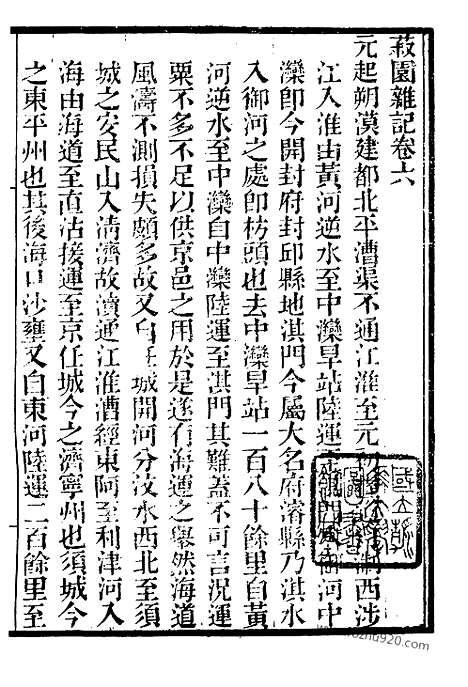 菽園雜記卷六
元起朔漠建都北平漕渠不通江淮至元初 西涉
江入淮由黃河逆水至中灤旱站陸運 河中
灤卽今開封府封邱縣地淇門今屬大名府濬縣乃淇水
入御河之處卽枋頭也去中灤旱站一百八十餘里自黃
河逆水至中灤自中灤陸運至淇門其難葢不可言況運
粟不多不足以供京邑之用於是遂有海運之舉然海道
風濤不測損失頗多故又自任城開河分汶水西北至須
城之安民山入淸濟故瀆通江淮漕經東阿至利津河入
海由海道至直沽接運至京任城今之濟寧州也須城今
之東平州也其後海口沙壅又自東河陸運二百餘里至